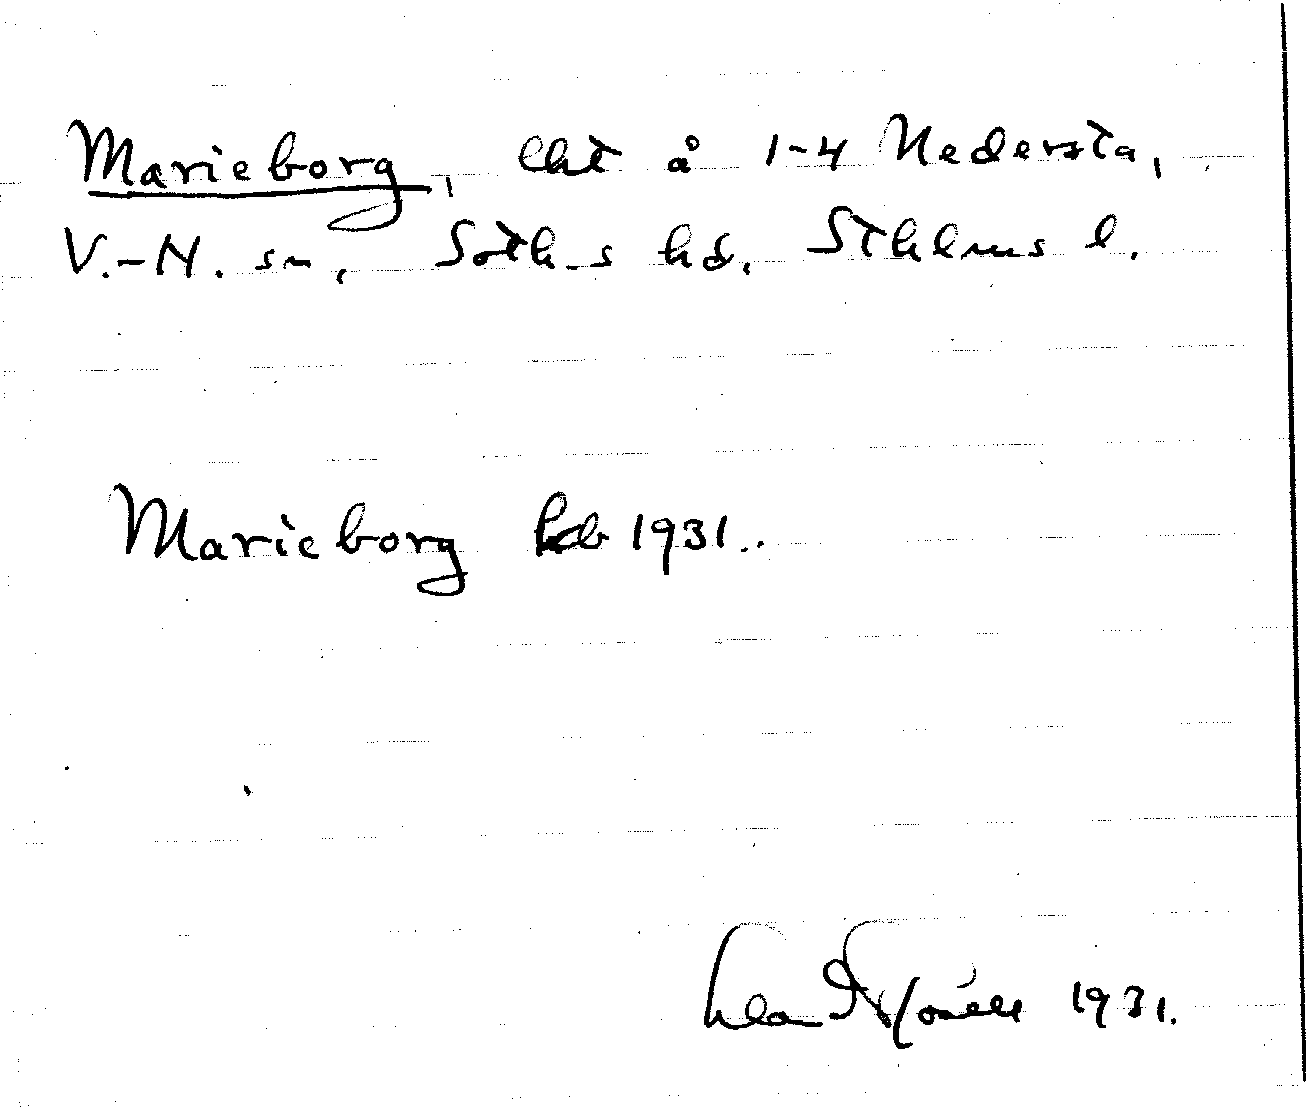 Marieborg, lht å 1-4 Nedersta,
V.-H. sn, Soth-s hd. Sthlms l.
Marieborg 1931..
1931.